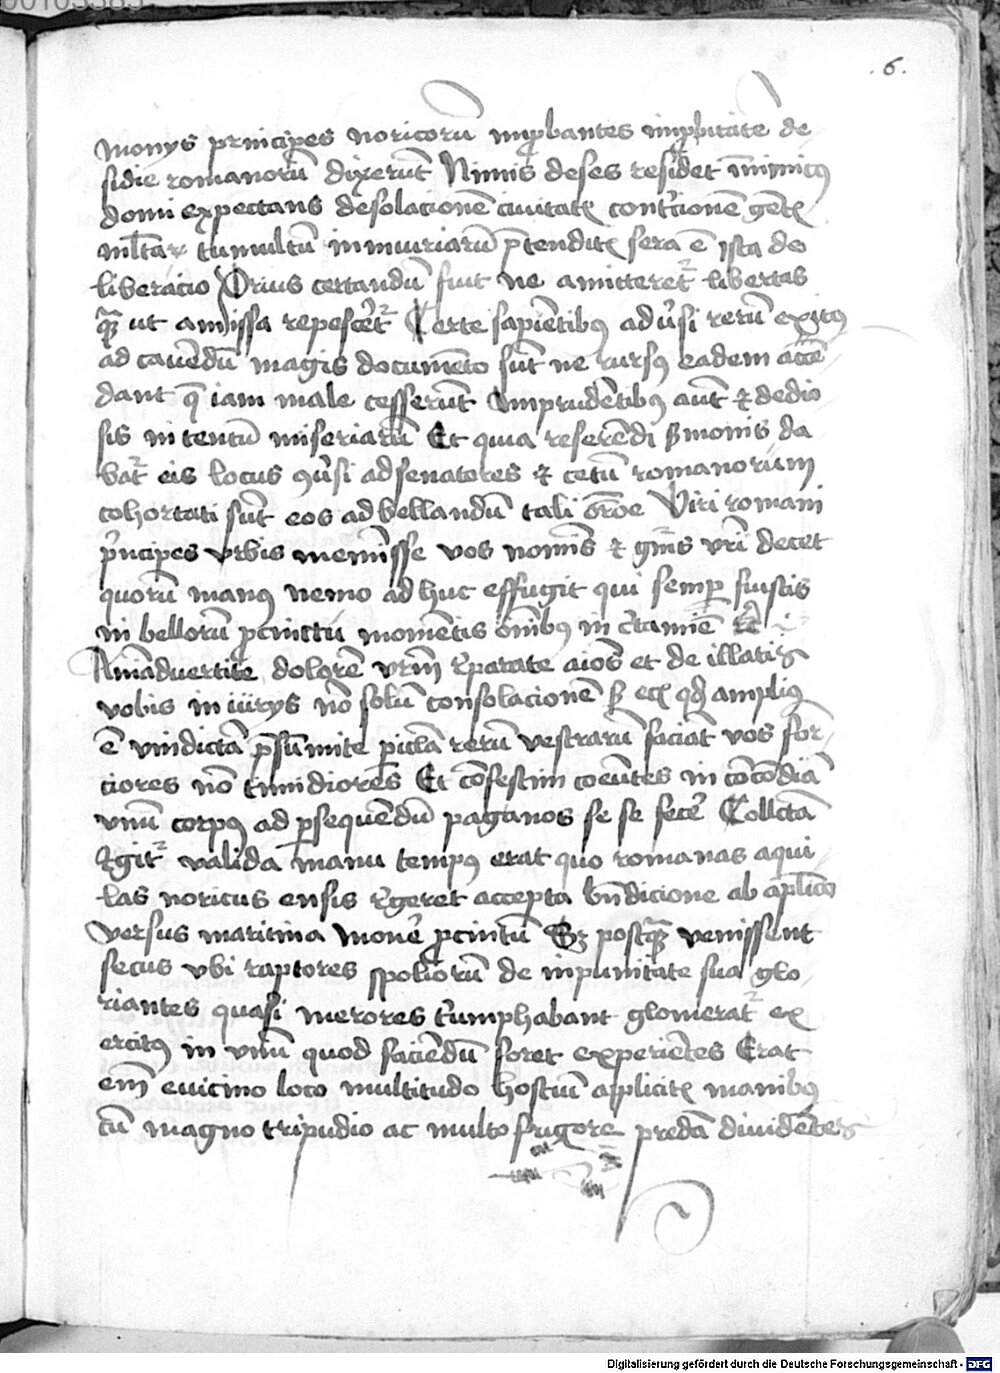 00103385
.6.
monys principes noricorū inp̄bantes inp̄bitatē de
sidie romanorū dixerūt Nimis deses residet inimicꝰ
domi expectans desolacionē ciuitatꝭ contͥcionē gētꝭ
tumultū iniuriarū p̄tenditꝭ sera ē ista de
liberacio Prius certandū fuit ne amitteretͬ libertas
qͣꝫ ut amissa repesceretͬ Certe sapiētibꝰ adūsi rerū exitꝰ
ad cauēdū magis documēto sūt ne rursꝰ eadem accē
dant q̄ iam male cesserūt Imprudētibꝰ aūt ⁊ dedio
sis in tentū miseriarū Et quia referēdi ẜmonis da
batͬ eis locus ꝯūsi ad senatores ⁊ cetū romanorum
cohortati sūt eos ad bellandū tali orōe Viri romani
pͥncipes vrbis meminisse vos nominis ⁊ gn̄is vr̄i decet
quorū manꝰ nemo ad huc effugit qui semꝑ fuistis
in bellorū p̄cinctu momētis om̄ibꝰ in c̄tamīe
Animaduertite dolorē vr̄m rꝑate aīos et de illatis
vobis iniurys nō solū consolacionē ꝫ ecꝭ qd̄ ampliꝰ
ē vindictā p̄sumite ꝑicl̄a rerū vestrarū faciāt vos for
tiores nō timidiores Et cōfestim coeūtes in cōcordiā
vnū corpꝰ ad ꝑsequēdū paganos se se fecer̄ Collectā
rgitͬ valida manu tempꝰ erat quo romanas aqui
las noricus ensis rgeret accepta bn̄dicione ab apl̄ico
versus maritima mouer̄ p̄cinctū Sꝫ postqͣꝫ venissent
secus vbi raptores spoliorū de inpunitate sua glo
riantes quasi merores tͥumphabant glomeratͬ ex
ercitꝰ in vnū quod faciēdū foret experiētes Erat
em̄ euicino loco multitudo hostiū aplicitꝭ manibꝰ
cū magno tripudio ac multo frigore predā diuidētes
Digitalisierung gefördert durch die Deutsche Forschungsgemeinschaft - DFG